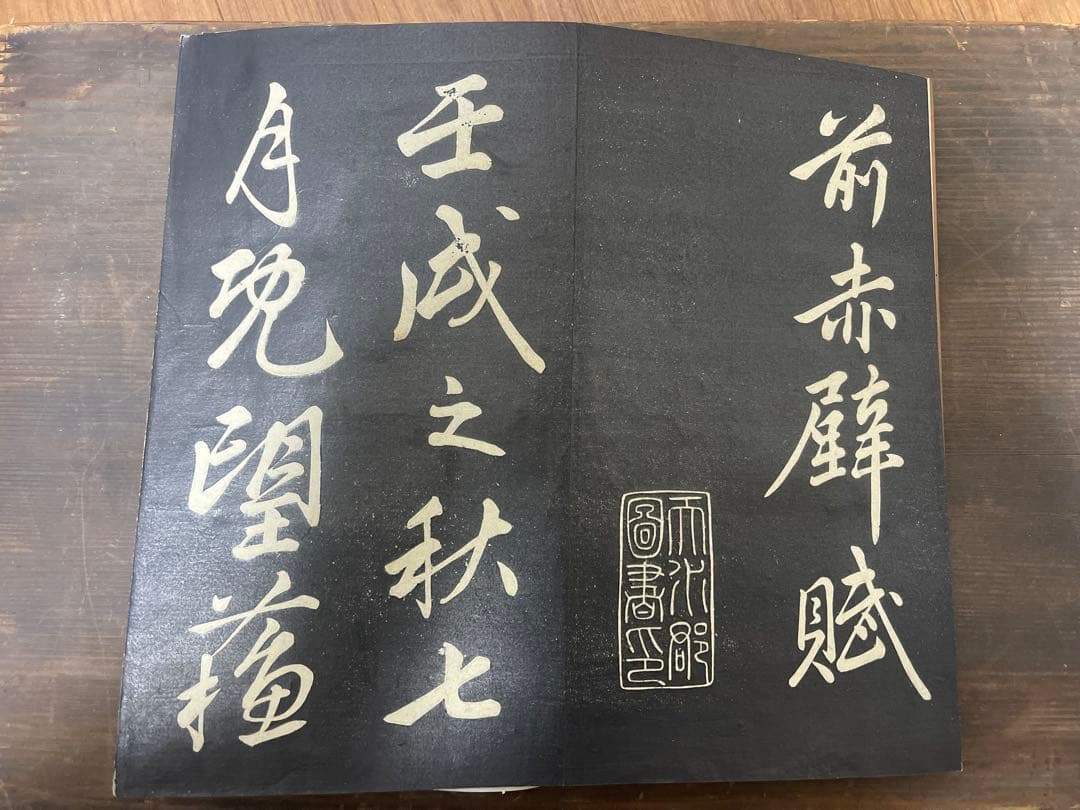 前赤壁賦
天水郡
圖書印
壬戌之秋七
月既望蘓